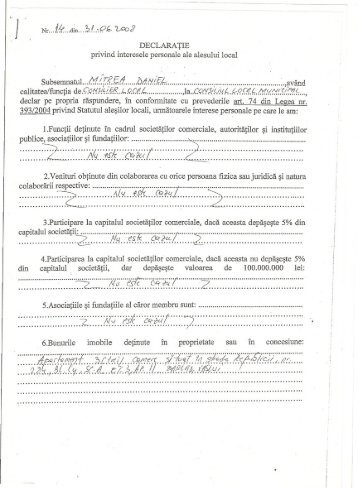 Nr. 14 din 31.06.2008
DECLARAŢIE
privind interesele personale ale alesului local
Subsemnatul MITREA DANIEL ,având
calitatea/funcţia de CONSILIER LOCAL ,la CONSILIUL LOCAL MUNICIPAL
declar pe propria răspundere, în conformitate cu prevederile art. 74 din Legea nr.
393/2004 privind Statutul aleşilor locali, următoarele interese personale pe care le am:
1.Funcţii deţinute în cadrul societăţilor comerciale, autorităţilor şi instituţiilor
publice, asociaţiilor şi fundaţiilor:
Nu este cazul
2.Venituri obţinute din colaborarea cu orice persoana fizica sau juridică şi natura
colaborării respective:
Nu este cazul
3.Participare la capitalul societăţilor comerciale, dacă aceasta depăşeşte 5% din
capitalul societăţii:
Nu este cazul
4.Participarea la capitalul societăţilor comerciale, dacă aceasta nu depăşeşte 5%
din capitalul societăţii, dar depăşeşte valoarea de 100.000.000 lei:
Nu este cazul
5.Asociaţiile şi fundaţiile al căror membru sunt:
Nu este cazul
6.Bunurile imobile deţinute în proprietate sau în concesiune:
Apartament 3(trei) camere situat în strada Republicii, nr.